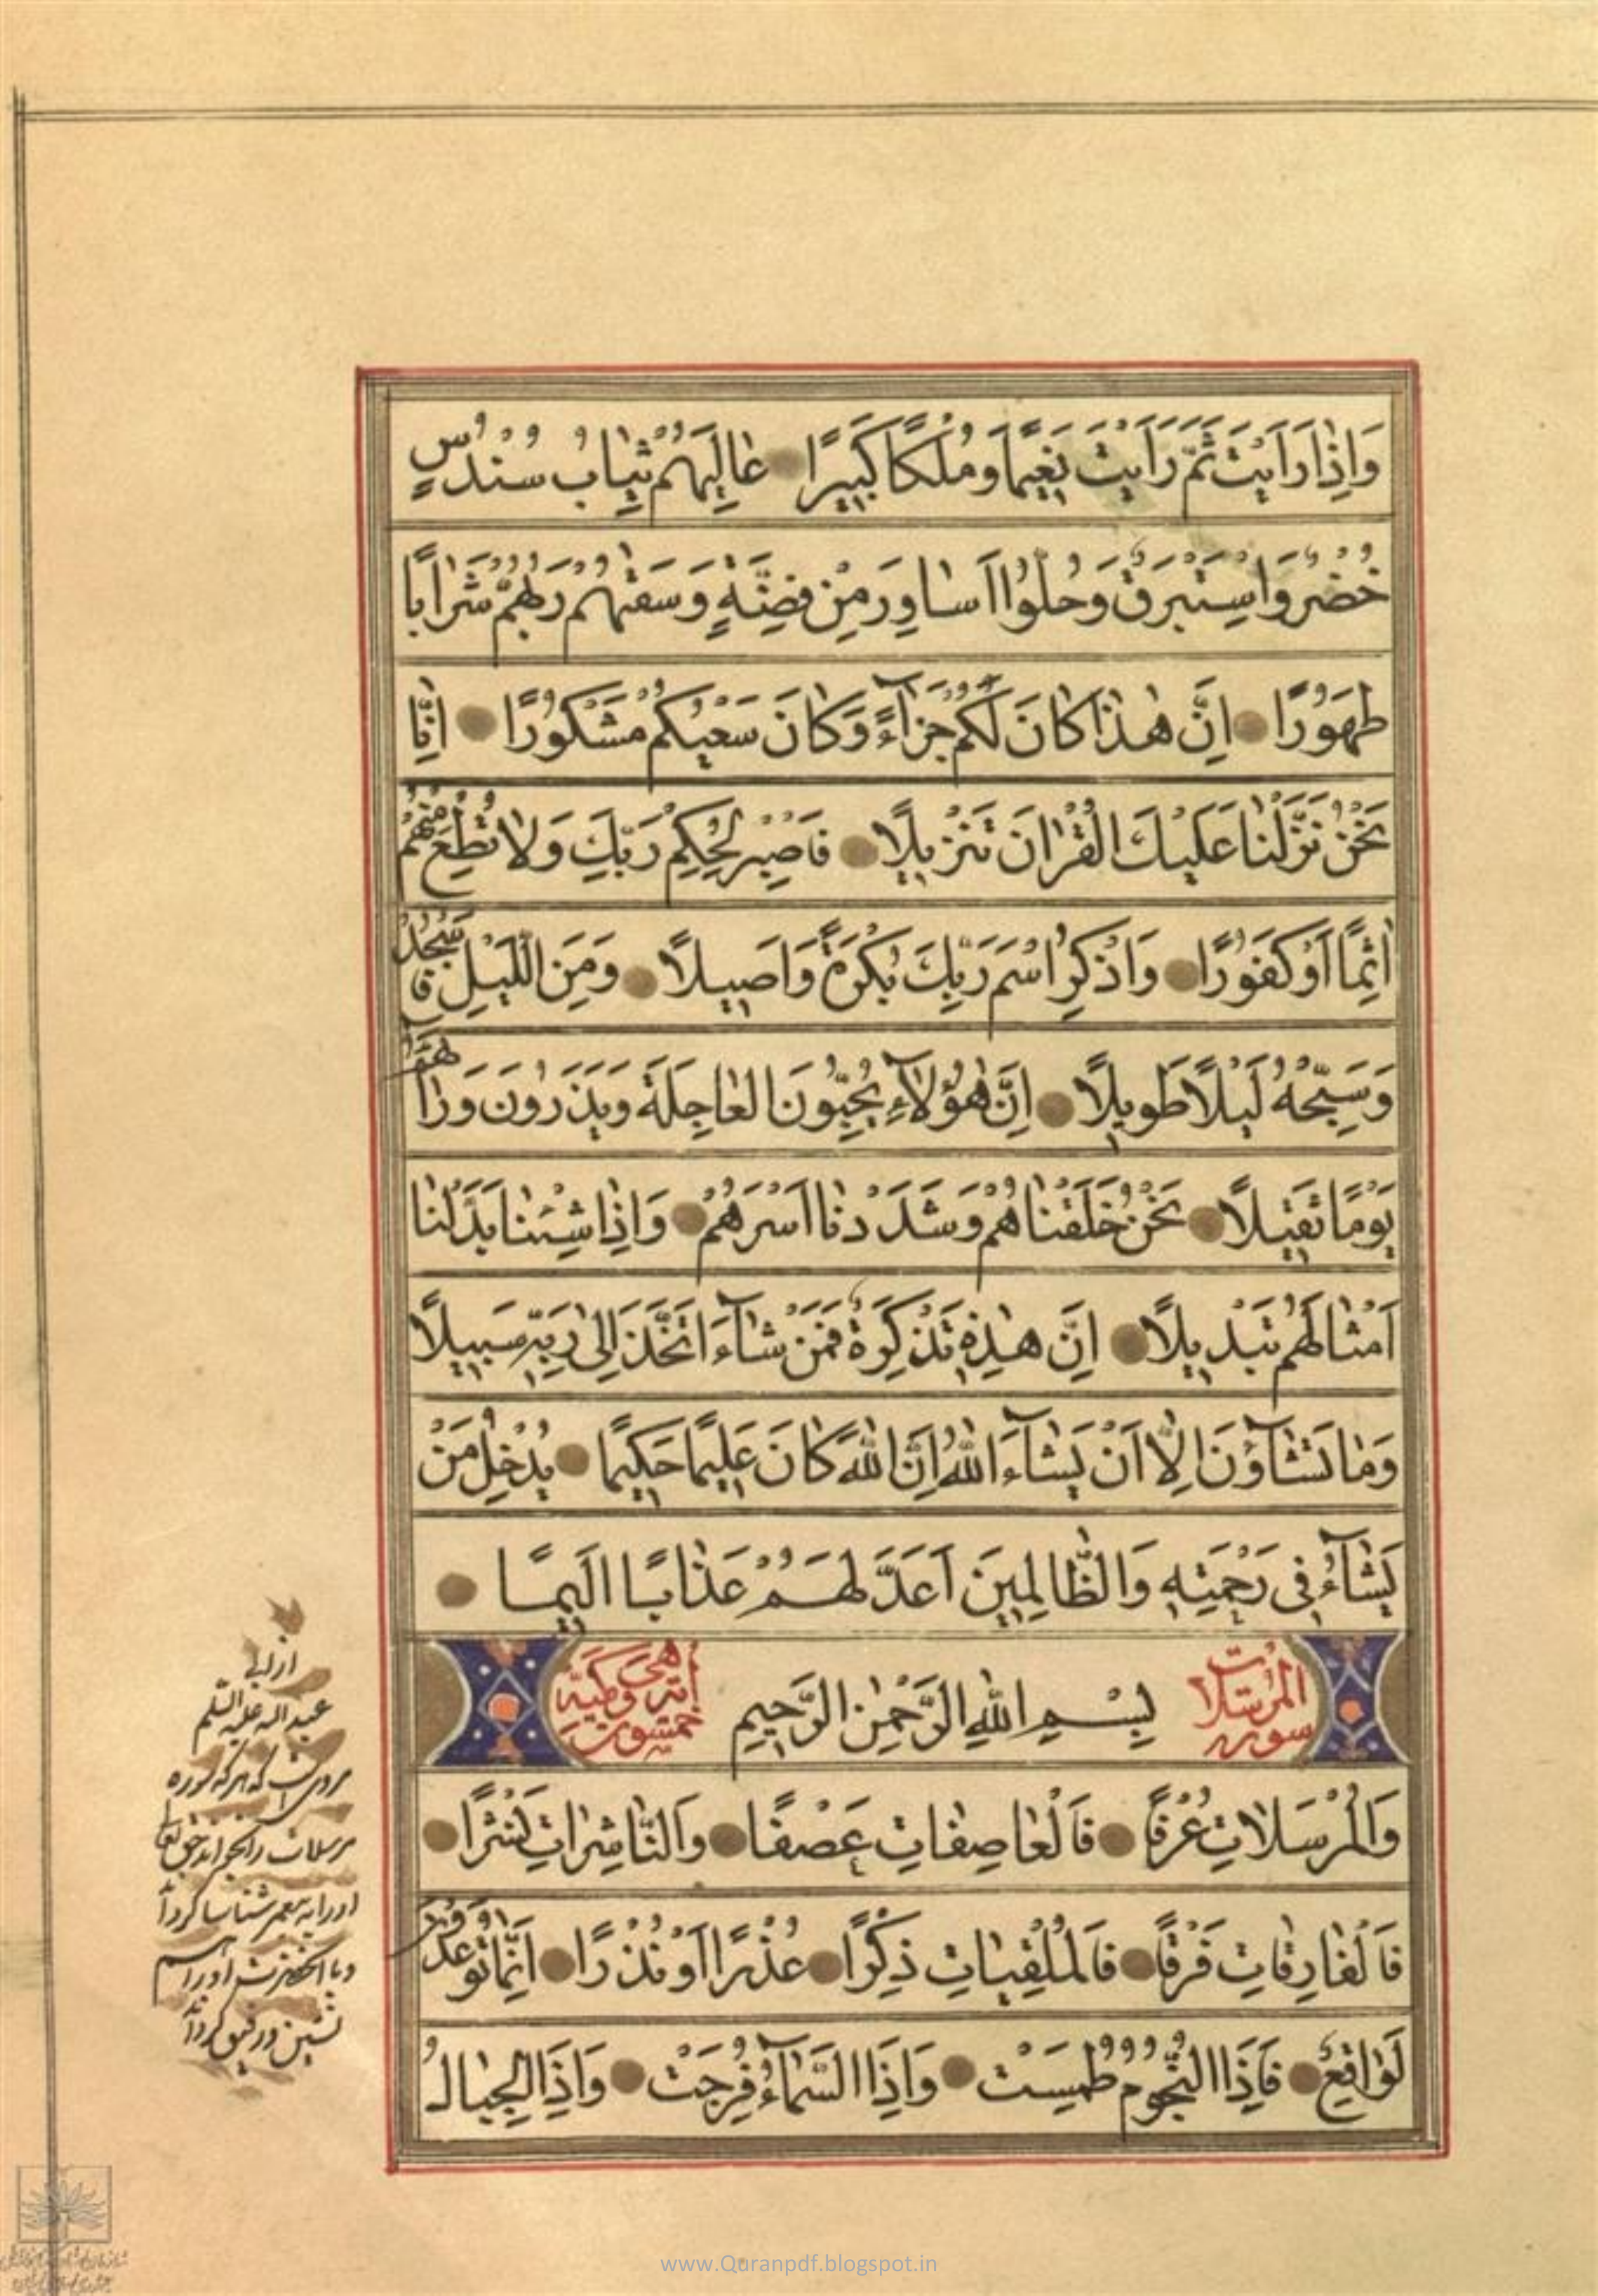 وَاِذٰا رَاَيْتَ ثَمَّ رَاَيْتَ نَعٖيماً وَمُلْكًا كَبٖيرًا عٰالِيَهُمْ ثِيٰابُ سُنْدُسٍ
خُضْرٌ وَاِسْتَبْرَقٌ وَحُلُّوٓا اَسٰاوِرَ مِنْ فِضَّةٍ وَسَقٰيهُمْ رَبُّهُمْ شَرٰابًا
طَهُورًا اِنَّ هٰذٰا كٰانَ لَكُمْ جَزٰٓاءً وَكٰانَ سَعْيُكُمْ مَشْكُورًا اِنّٰا
نَحْنُ نَزَّلْنٰا عَلَيْكَ الْقُرْاٰنَ تَنْزٖيلًا فَاصْبِرْ لِحُكْمِ رَبِّكَ وَلٰا تُطِعْ مِنْهُمْ
اٰثِمًا اَوْ كَفُورًا وَاذْكُرِ اسْمَ رَبِّكَ بُكْرَةً وَاَصٖيلًا وَمِنَ اللَّيْلِ فَاسْجُدْ لَهُ
وَسَبِّحْهُ لَيْلًا طَوٖيلًا اِنَّ هٰٓؤُلٰٓاءِ يُحِبُّونَ الْعٰاجِلَةَ وَيَذَرُونَ وَرٰٓاءَهُمْ
يَوْمًا ثَقٖيلًا نَحْنُ خَلَقْنٰاهُمْ وَشَدَدْنٰا اَسْرَهُمْ وَاِذٰا شِئْنٰا بَدَّلْنٰا
اَمْثٰالَهُمْ تَبْدٖيلًا اِنَّ هٰذِهٖ تَذْكِرَةٌ فَمَنْ شٰٓاءَ اتَّخَذَ اِلىٰ رَبِّهٖ سَبٖيلًا
وَمٰا تَشٰٓاؤُنَ اِلّٰا اَنْ يَشٰٓاءَ اللّٰهُ اِنَّ اللّٰهَ كٰانَ عَلٖيمًا حَكٖيمًا يُدْخِلُ مَنْ
يَشٰٓاءُ فٖى رَحْمَتِهٖ وَالظّٰالِمٖينَ اَعَدَّ لَهُمْ عَذٰابًا اَلٖيمًا
سورة المرسلات
بِسْمِ اللّٰهِ الرَّحْمٰنِ الرَّحٖيمِ
خمسون اية وهي مكية
وَالْمُرْسَلٰاتِ عُرْفًا فَالْعٰاصِفٰاتِ عَصْفًا وَالنّٰاشِرٰاتِ نَشْرًا
فَالْفٰارِقٰاتِ فَرْقًا فَالْمُلْقِيٰاتِ ذِكْرًا عُذْرًا اَوْ نُذْرًا اِنَّمٰا تُوعَدُونَ
لَوٰاقِعٌ فَاِذَا النُّجُومُ طُمِسَتْ وَاِذَا السَّمٰٓاءُ فُرِجَتْ وَاِذَا الْجِبٰالُ
از ابی
عبد الله علیه السلم
مرویست که هرکه سوره
مرسلات را بخواند حق تعالی
او را به پیغمبر شناسا گرداند
و با آنحضرت او را
نشین و رفیق گرداند
www.Quranpdf.blogspot.in